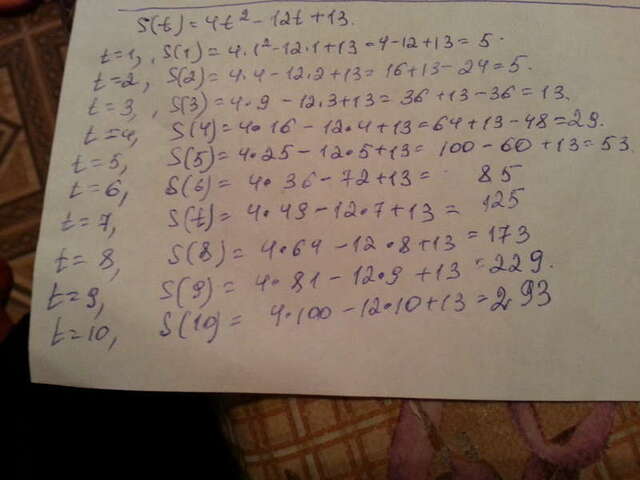 S(t) = 4t² - 12t + 13.
t=1, , S(1) = 4·1²-12·1+13 = 4-12+13 = 5.
t=2, , S(2) = 4·4-12·2+13 = 16+13-24 = 5.
t=3, , S(3) = 4·9 - 12·3+13 = 36+13-36 = 13.
t=4, S(4) = 4·16 - 12·4+13 = 64+13-48 = 29.
t=5, S(5) = 4·25 - 12·5+13 = 100-60+13 = 53.
t=6, S(6) = 4·36-72+13 = 85
t=7, S(t) = 4·49-12·7+13 = 125
t=8, S(8) = 4·64-12·8+13 = 173
t=9, S(9) = 4·81-12·9+13 = 229.
t=10, S(10) = 4·100-12·10+13 = 293